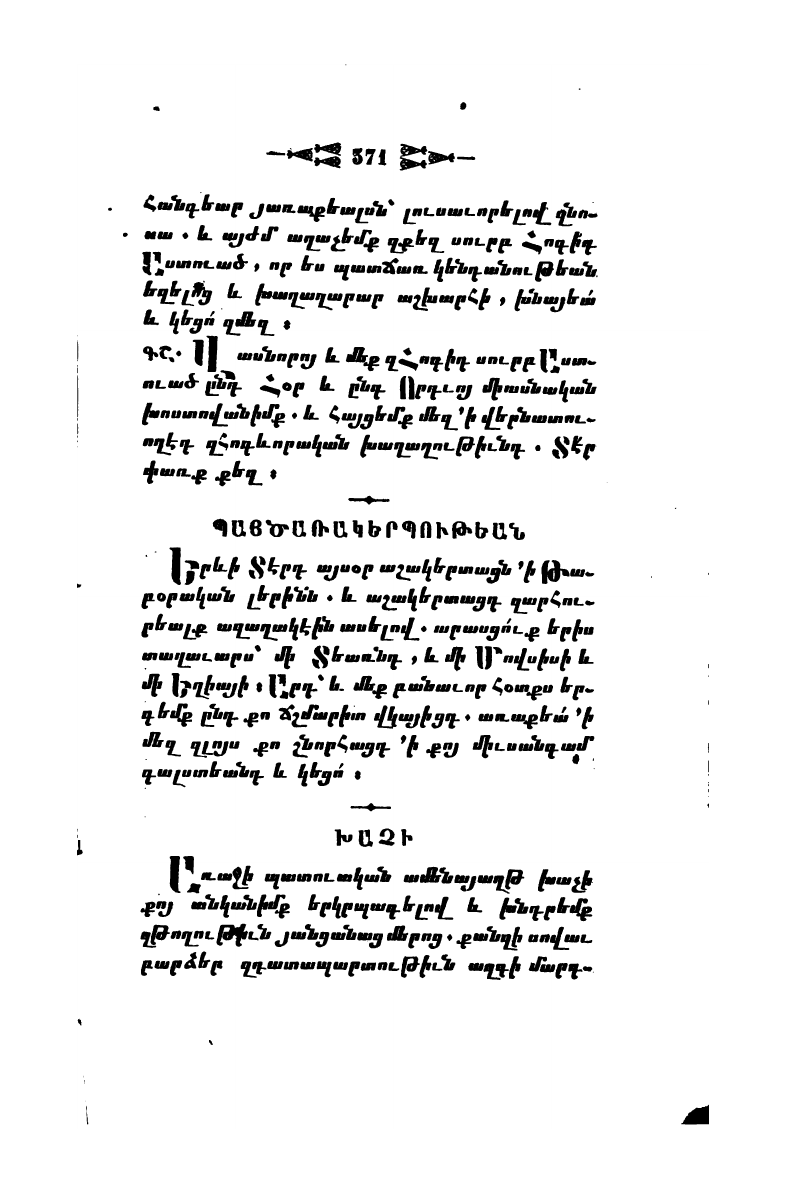 371
Հանգեար յառաքեալսն՝ լուսաւորելով զնո-
սա . և այժմ աղաչեմք զքեզ սուրբ Հոգիդ
Աստուած , որ ես պատճառ կենդանութեան
եղելոց և խաղաղարար աշխարհի , խնայեա՛
և կեցո՛ զմեզ ։
ԳՇ. Մ ասնորոյ և մեք զՀոգիդ սուրբ Աստ-
ուած ընդ Հօր և ընդ Որդւոյ միասնական
խոստովանիմք . և հայցեմք մեզ ՚ի վերնատու-
ողէդ զհոգևորական խաղաղութիւնդ . Տէր
փառք քեզ ։
ՊԱՅԾԱՌԱԿԵՐՊՈՒԹԵԱՆ
Երևի Տէրդ այսօր աշակերտացն ՚ի Թա-
բօրական լերինն . և աշակերտացդ զարհու-
րեալք աղաղակէին ասելով . արասցո՛ւք երիս
տաղաւարս՝ մի Տեառնդ , և մի Մովսիսի և
մի Եղիայի ։ Արդ՝ և մեք բանաւոր հօտքս եր-
գեմք ընդ քո ճշմարիտ վկայիցդ . առաքեա՛ ՚ի
մեզ զլոյս քո շնորհացդ ՚ի քոյ միւսանգամ
գալստեանդ և կեցո՛ ։
ԽԱՉԻ
Առաջի պատուական ամենայաղթ խաչի
քոյ անկանիմք երկրպագելով և խնդրեմք
զթողութիւն յանցանաց մերոց . քանզի սովաւ
բարձեր զդատապարտութիւն ազգի մարդ-